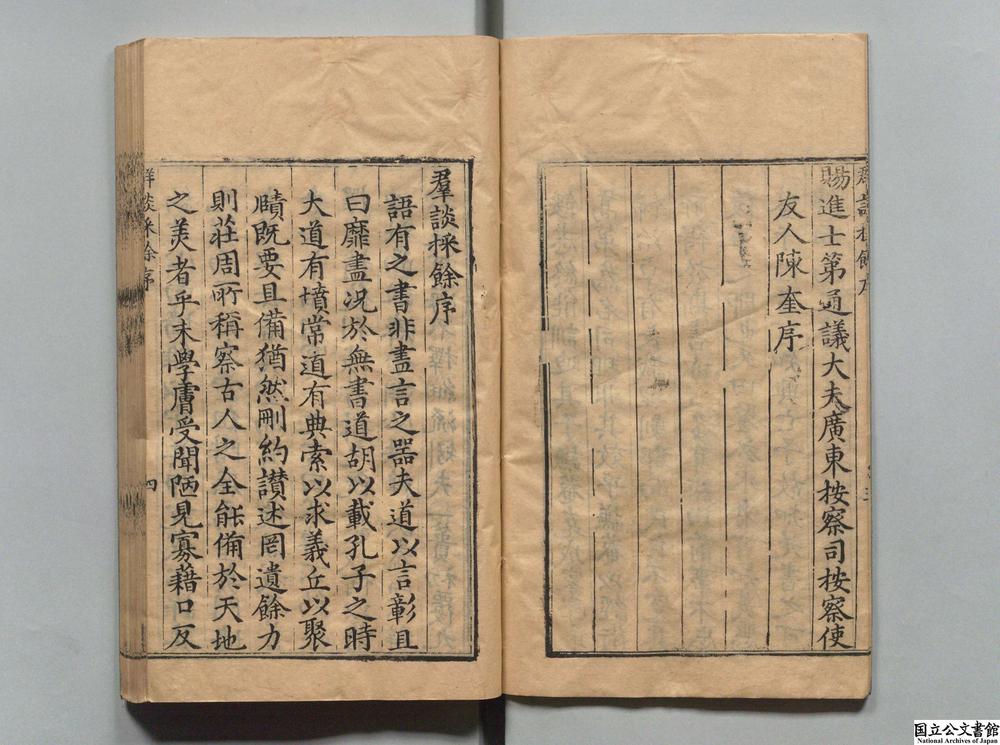 賜進士第通議大夫廣東按察司按察使
友人陳奎序
羣談採餘序
語有之書非盡言之器夫道以言彰且
曰靡盡况於無書道胡以載孔子之時
大道有墳常道有典索以求義丘以聚
賾既要且備猶然刪約讃述罔遺餘力
則莊周所稱察古人之全能備於天地
之美者乎末學膚受聞陋見寡藉口反
群談採餘序
四
国立公文書館
National Archives of Japan